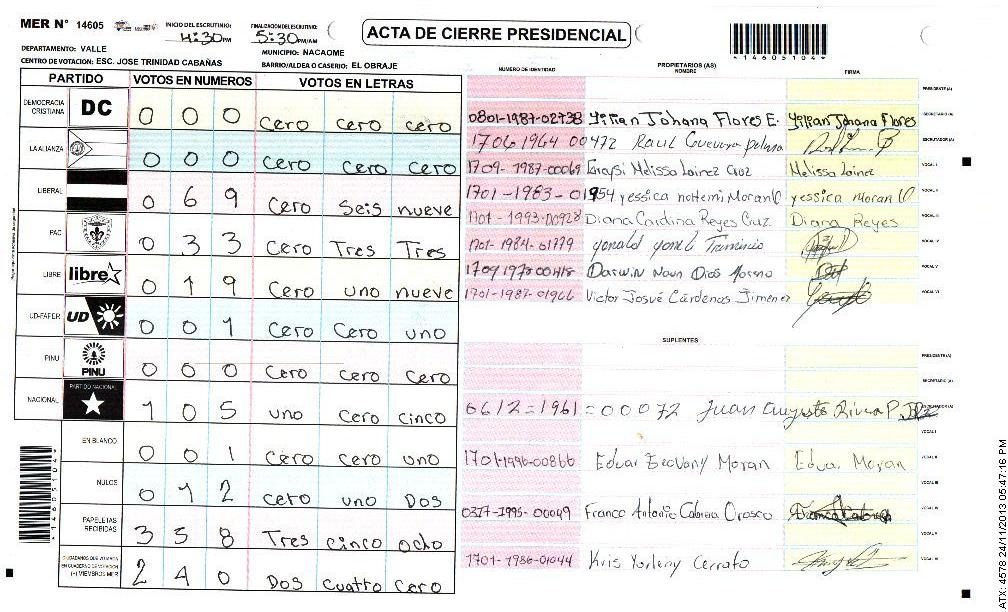 MER N° 14605
INICIO DEL ESCRUTINIO:
4:30 PM
FINALIZACION DEL ESCRUTINIO:
5:30 PM/AM
ACTA DE CIERRE PRESIDENCIAL
*14605104*
DEPARTAMENTO: VALLE
MUNICIPIO: NACAOME
CENTRO DE VOTACION: ESC. JOSE TRINIDAD CABAÑAS
BARRIO/ALDEA O CASERIO: EL OBRAJE
PARTIDO VOTOS EN NUMEROS VOTOS EN LETRAS
DEMOCRACIA CRISTIANA DC 0 0 0 cero cero cero
LA ALIANZA 0 0 0 cero cero cero
LIBERAL 0 6 9 cero seis nueve
PAC 0 3 3 cero Tres Tres
LIBRE libre 0 1 9 cero uno nueve
UD-FAPER UD 0 0 1 cero cero uno
PINU PINU 0 0 0 cero cero cero
NACIONAL PARTIDO NACIONAL 1 0 5 uno cero cinco
EN BLANCO 0 0 1 cero cero uno
NULOS 0 1 2 cero uno Dos
PAPELETAS RECIBIDAS 3 5 8 Tres cinco ocho
CIUDADANOS QUE VOTARON EN CUADERNO DE VOTACION (+) MIEMBROS MER 2 4 0 Dos cuatro cero
*14605104*
NUMERO DE IDENTIDAD PROPIETARIOS (AS) NOMBRE FIRMA
PRESIDENTE (A)
0801-1987-02738 Yilian Johana Flores E. Yilian Johana Flores SECRETARIO (A)
1706 1964 00472 Raul Guevara ESCRUTADOR (A)
1709-1987-00069 Melissa Lainez Cruz Melissa Lainez VOCAL I
1701-1983-01954 yessica nohemi Moran yessica moran VOCAL II
1701-1993-00928 Diana Carolina Reyes Cruz Diana Reyes VOCAL III
1701-1984-01779 yonald VOCAL IV
Darwin Noun Dios Moreno VOCAL V
1701-1987-01966 Victor Josué Cárdenas Jimenez VOCAL VI
SUPLENTES
PRESIDENTE (A)
SECRETARIO (A)
0612=1961=00072 Juan Augusto Rivera P. ESCRUTADOR (A)
VOCAL I
1701-1996-00866 Edvar Geovany Moran Edvar Moran VOCAL II
VOCAL III
Franco Antonio Cabrera Orosco VOCAL IV
VOCAL V
1701-1986-01044 Kris Yorleny Cerrato VOCAL VI
ATX: 4578 24/11/2013 05:47:16 PM